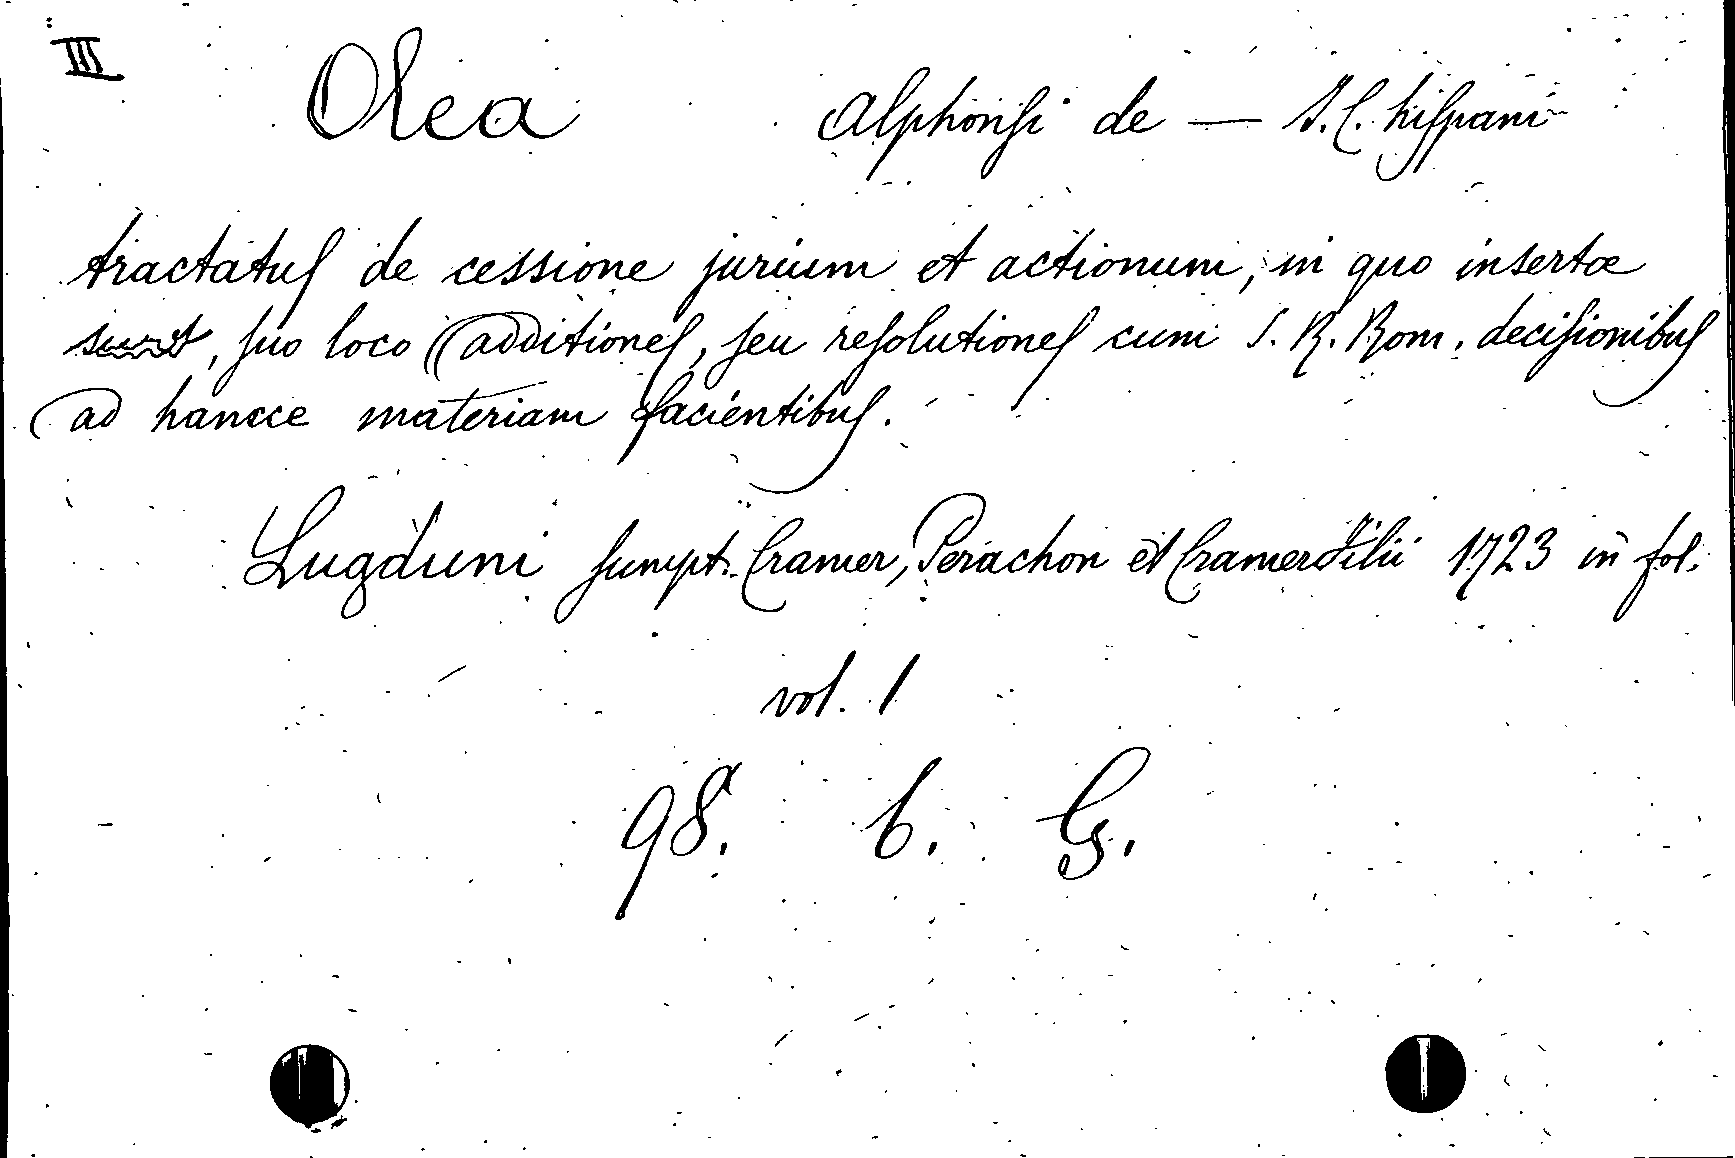 III
Olea Alphonsi de — J.C. hispani
tractatus de cessione jurium et actionum, in quo insertæ
sunt, suo loco additiones, seu resolutiones cum S. R. Rom. decisionibus
ad hancce materiam facientibus.
Lugduni sumpt. Cramer, Perachon et Cramer Filii 1723 in fol.
vol. 1
98. b. G.